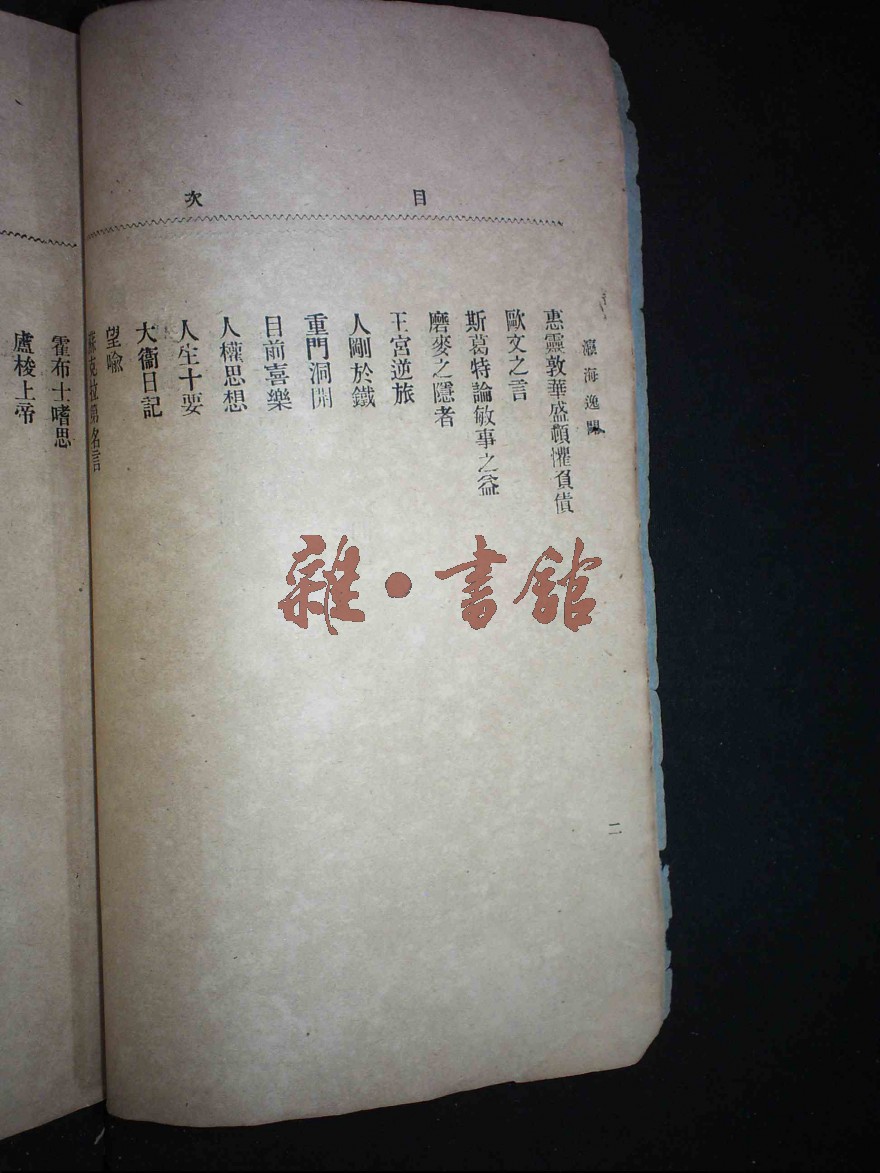 瀛海逸聞
目次
惠靈敦華盛頓懼負債
歐文之言
斯葛特論敏事之益
磨麥之隱者
王宮逆旅
人剛於鐵
重門洞開
目前喜樂
人權思想
人生十要
大衞日記
望喻
蘇克拉第名言
霍布士嗜思
盧梭上帝
二
雜·書館